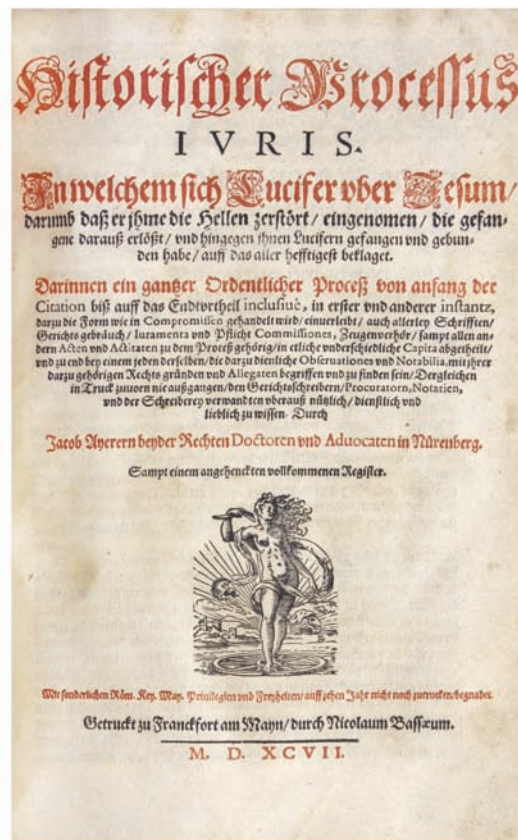 Historischer Processus
IVRIS.
In welchem sich Lucifer vber Jesum/
darumb daß er jhme die Hellen zerstört/ eingenomen/ die gefan-
gene darauß erlößt/ vnd hingegen jhnen Lucifern gefangen vnd gebun-
den habe/ auff das aller hefftigest beklaget.
Darinnen ein gantzer Ordentlicher Proceß von anfang der
Citation biß auff das Endtvrtheil inclusiuè, in erster vnd anderer instantz,
darzu die Form wie in Compromissen gehandelt wird/ einuerleibt/ auch allerley Schrifften/
Gerichts gebräuch/ Iuramenta vnd Pflicht Commissiones, Zeugenverhör/ sampt allen an-
dern Acten vnd Actitaten zu dem Proceß gehörig/ in etliche vnderschiedliche Capita abgetheilt/
vnd zu end bey einem jeden derselben/ die darzu dienliche Obseruationes vnd Notabilia, mit jhrer
darzu gehörigen Rechts gründen vnd Allegaten begriffen vnd zu finden sein/ Dergleichen
in Truck zuuorn nie außgangen/ den Gerichtschreibern/ Procuratorn, Notarien,
vnd der Schreiberey verwandten vberauß nützlich/ dienstlich vnd
lieblich zu wissen. Durch
Jacob Ayerern beyder Rechten Doctoren vnd Aduocaten in Nürenberg.
Sampt einem angehenckten vollkommenen Register.
Mit sonderlichen Röm. Key. May. Priuilegien vnd Freyheiten/ auff zehen Jahr nicht nach zutrucken/ begnadet.
Getruckt zu Franckfort am Mayn/ durch Nicolaum Bassæum.
M. D. XCVII.